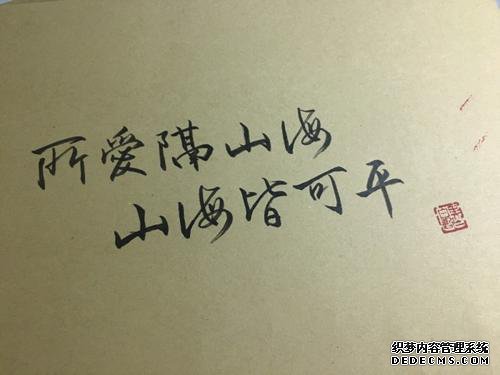 所愛隔山海
山海皆可平
织梦内容管理系统
DEDECMS.COM